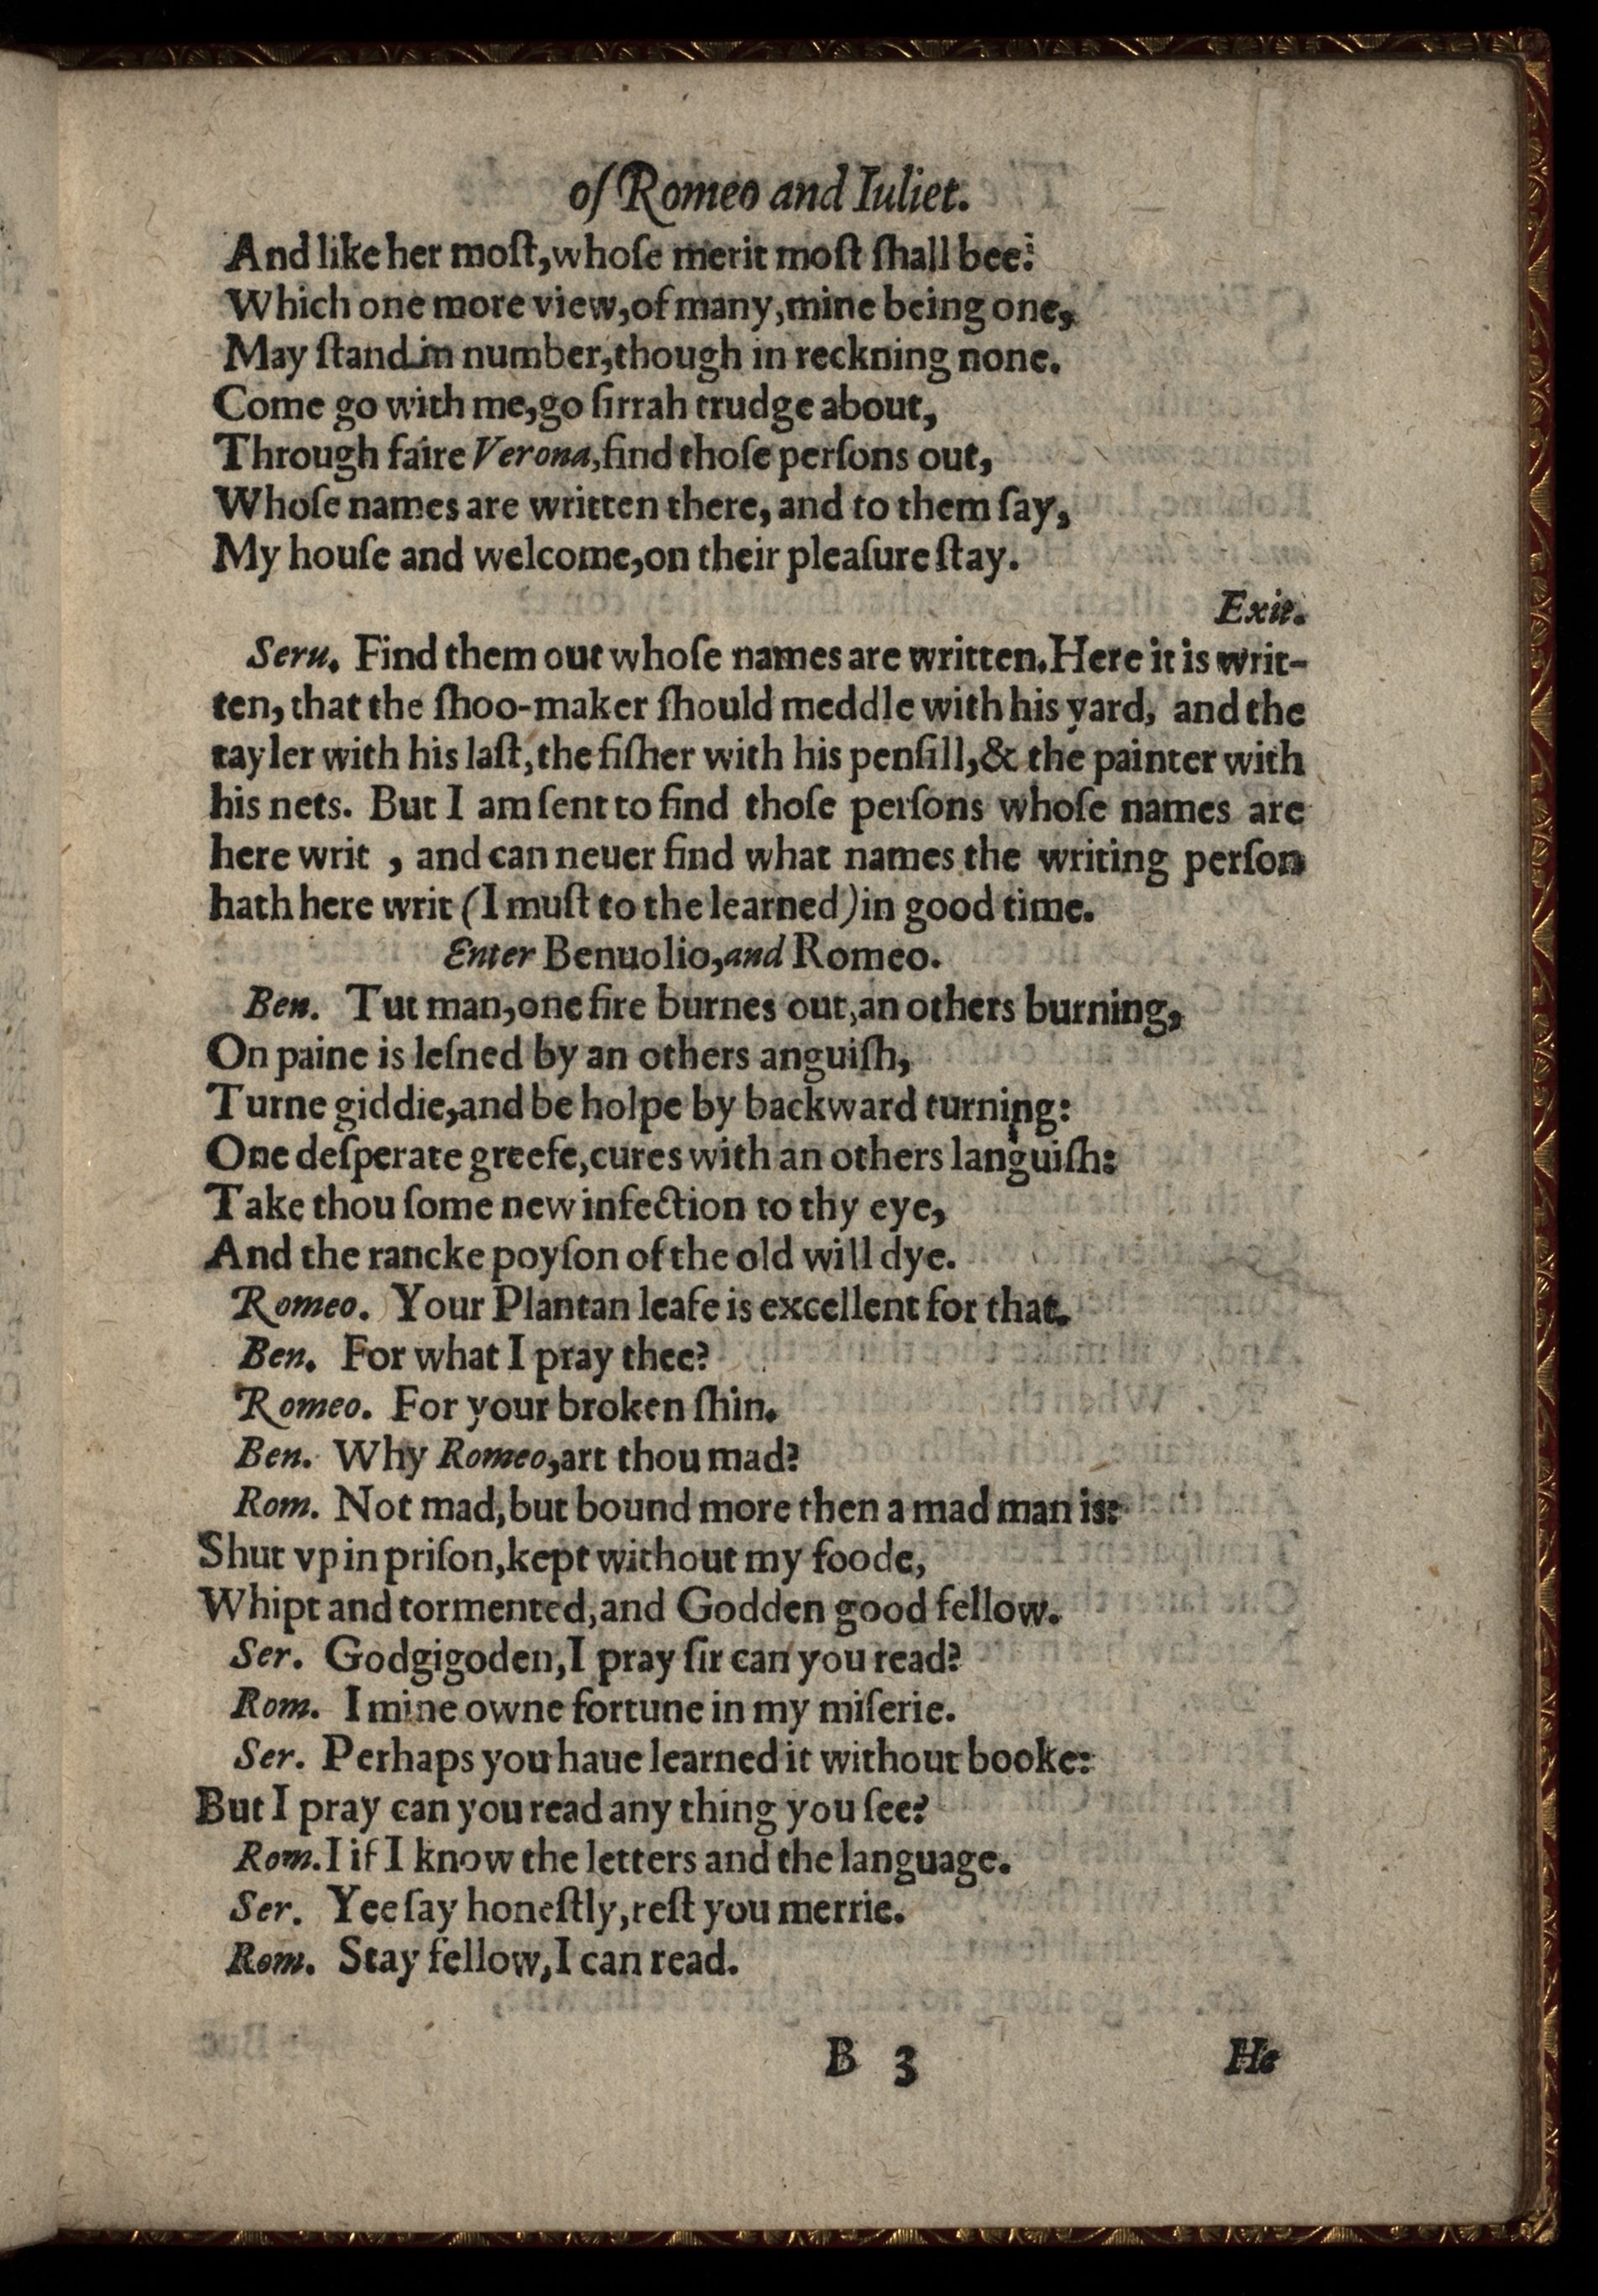 of Romeo and Iuliet.
And like her moſt, whoſe merit moſt ſhall bee:
Which one more view, of many, mine being one,
May ſtand in number, though in reckning none.
Come go with me, go ſirrah trudge about,
Through faire Verona, find thoſe perſons out,
Whoſe names are written there, and to them ſay,
My houſe and welcome, on their pleaſure ſtay.
Exit.
Seru. Find them out whoſe names are written. Here it is writ-
ten, that the ſhoo-maker ſhould meddle with his yard, and the
tayler with his laſt, the fiſher with his penſill, & the painter with
his nets. But I am ſent to find thoſe perſons whoſe names are
here writ , and can neuer find what names the writing perſon
hath here writ (I muſt to the learned) in good time.
Enter Benuolio, and Romeo.
Ben. Tut man, one fire burnes out, an others burning,
On paine is leſned by an others anguiſh,
Turne giddie, and be holpe by backward turning:
One deſperate greefe, cures with an others languiſh:
Take thou ſome new infection to thy eye,
And the rancke poyſon of the old will dye.
Romeo. Your Plantan leafe is excellent for that.
Ben. For what I pray thee?
Romeo. For your broken ſhin.
Ben. Why Romeo, art thou mad?
Rom. Not mad, but bound more then a mad man is:
Shut vp in priſon, kept without my foode,
Whipt and tormented, and Godden good fellow.
Ser. Godgigoden, I pray ſir can you read?
Rom. I mine owne fortune in my miſerie.
Ser. Perhaps you haue learned it without booke:
But I pray can you read any thing you ſee?
Rom. I if I know the letters and the language.
Ser. Yee ſay honeſtly, reſt you merrie.
Rom. Stay fellow, I can read.
B 3 He